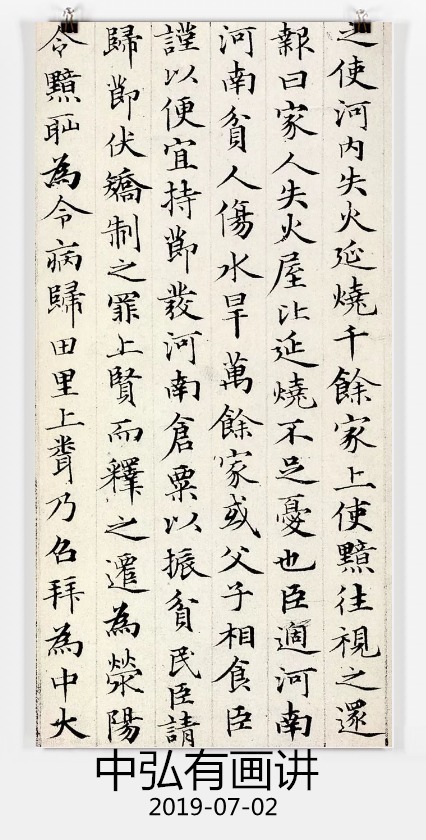 之使河内失火延燒千餘家上使黯往視之還
報曰家人失火屋比延燒不足憂也臣適河南
河南貧人傷水旱萬餘家或父子相食臣
謹以便宜持節發河南倉粟以振貧民臣請
歸節伏矯制之罪上賢而釋之遷為滎陽
令黯耻為令病歸田里上聞乃召拜為中大
中弘有画讲
2019-07-02